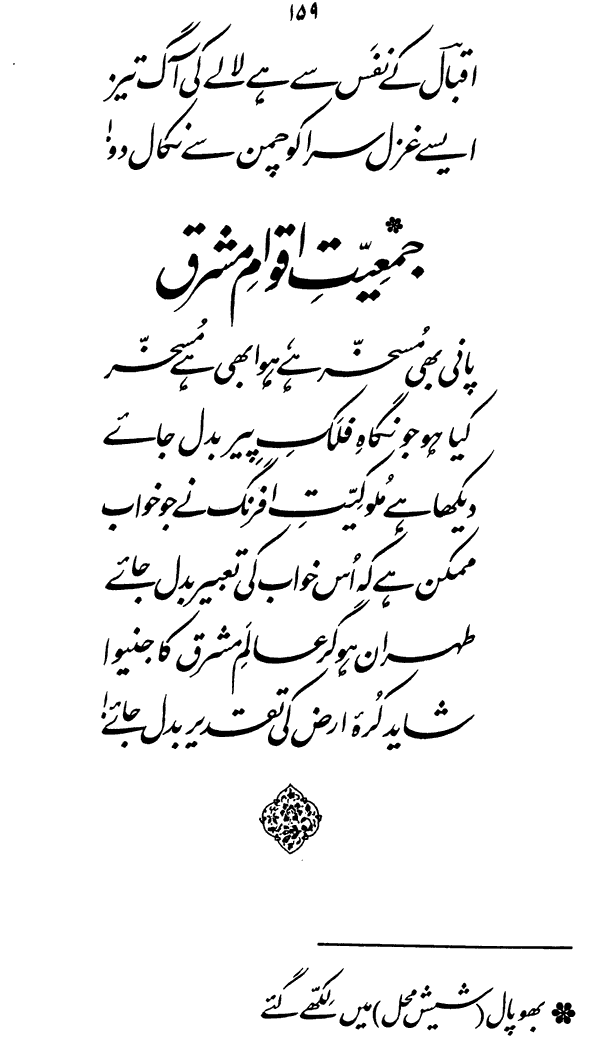 ۱۵۹
اقبالؔ کے نفَس سے ہے لالے کی آگ تیز
ایسے غزل سرا کو چمن سے نکال دو!
جمعیّتِ اقوامِ مشرق *
پانی بھی مُسخّر ہے ہوا بھی ہے مُسخّر
کیا ہو جو نگاہِ فلکِ پیر بدل جائے
دیکھا ہے مُلوکیّتِ افرنگ نے جو خواب
ممکن ہے کہ اُس خواب کی تعبیر بدل جائے
طہران ہو گر عالَمِ مشرق کا جنیوا
شاید کُرۂ ارض کی تقدیر بدل جائے!
* بھوپال (شیش محل) میں لکھّے گئے